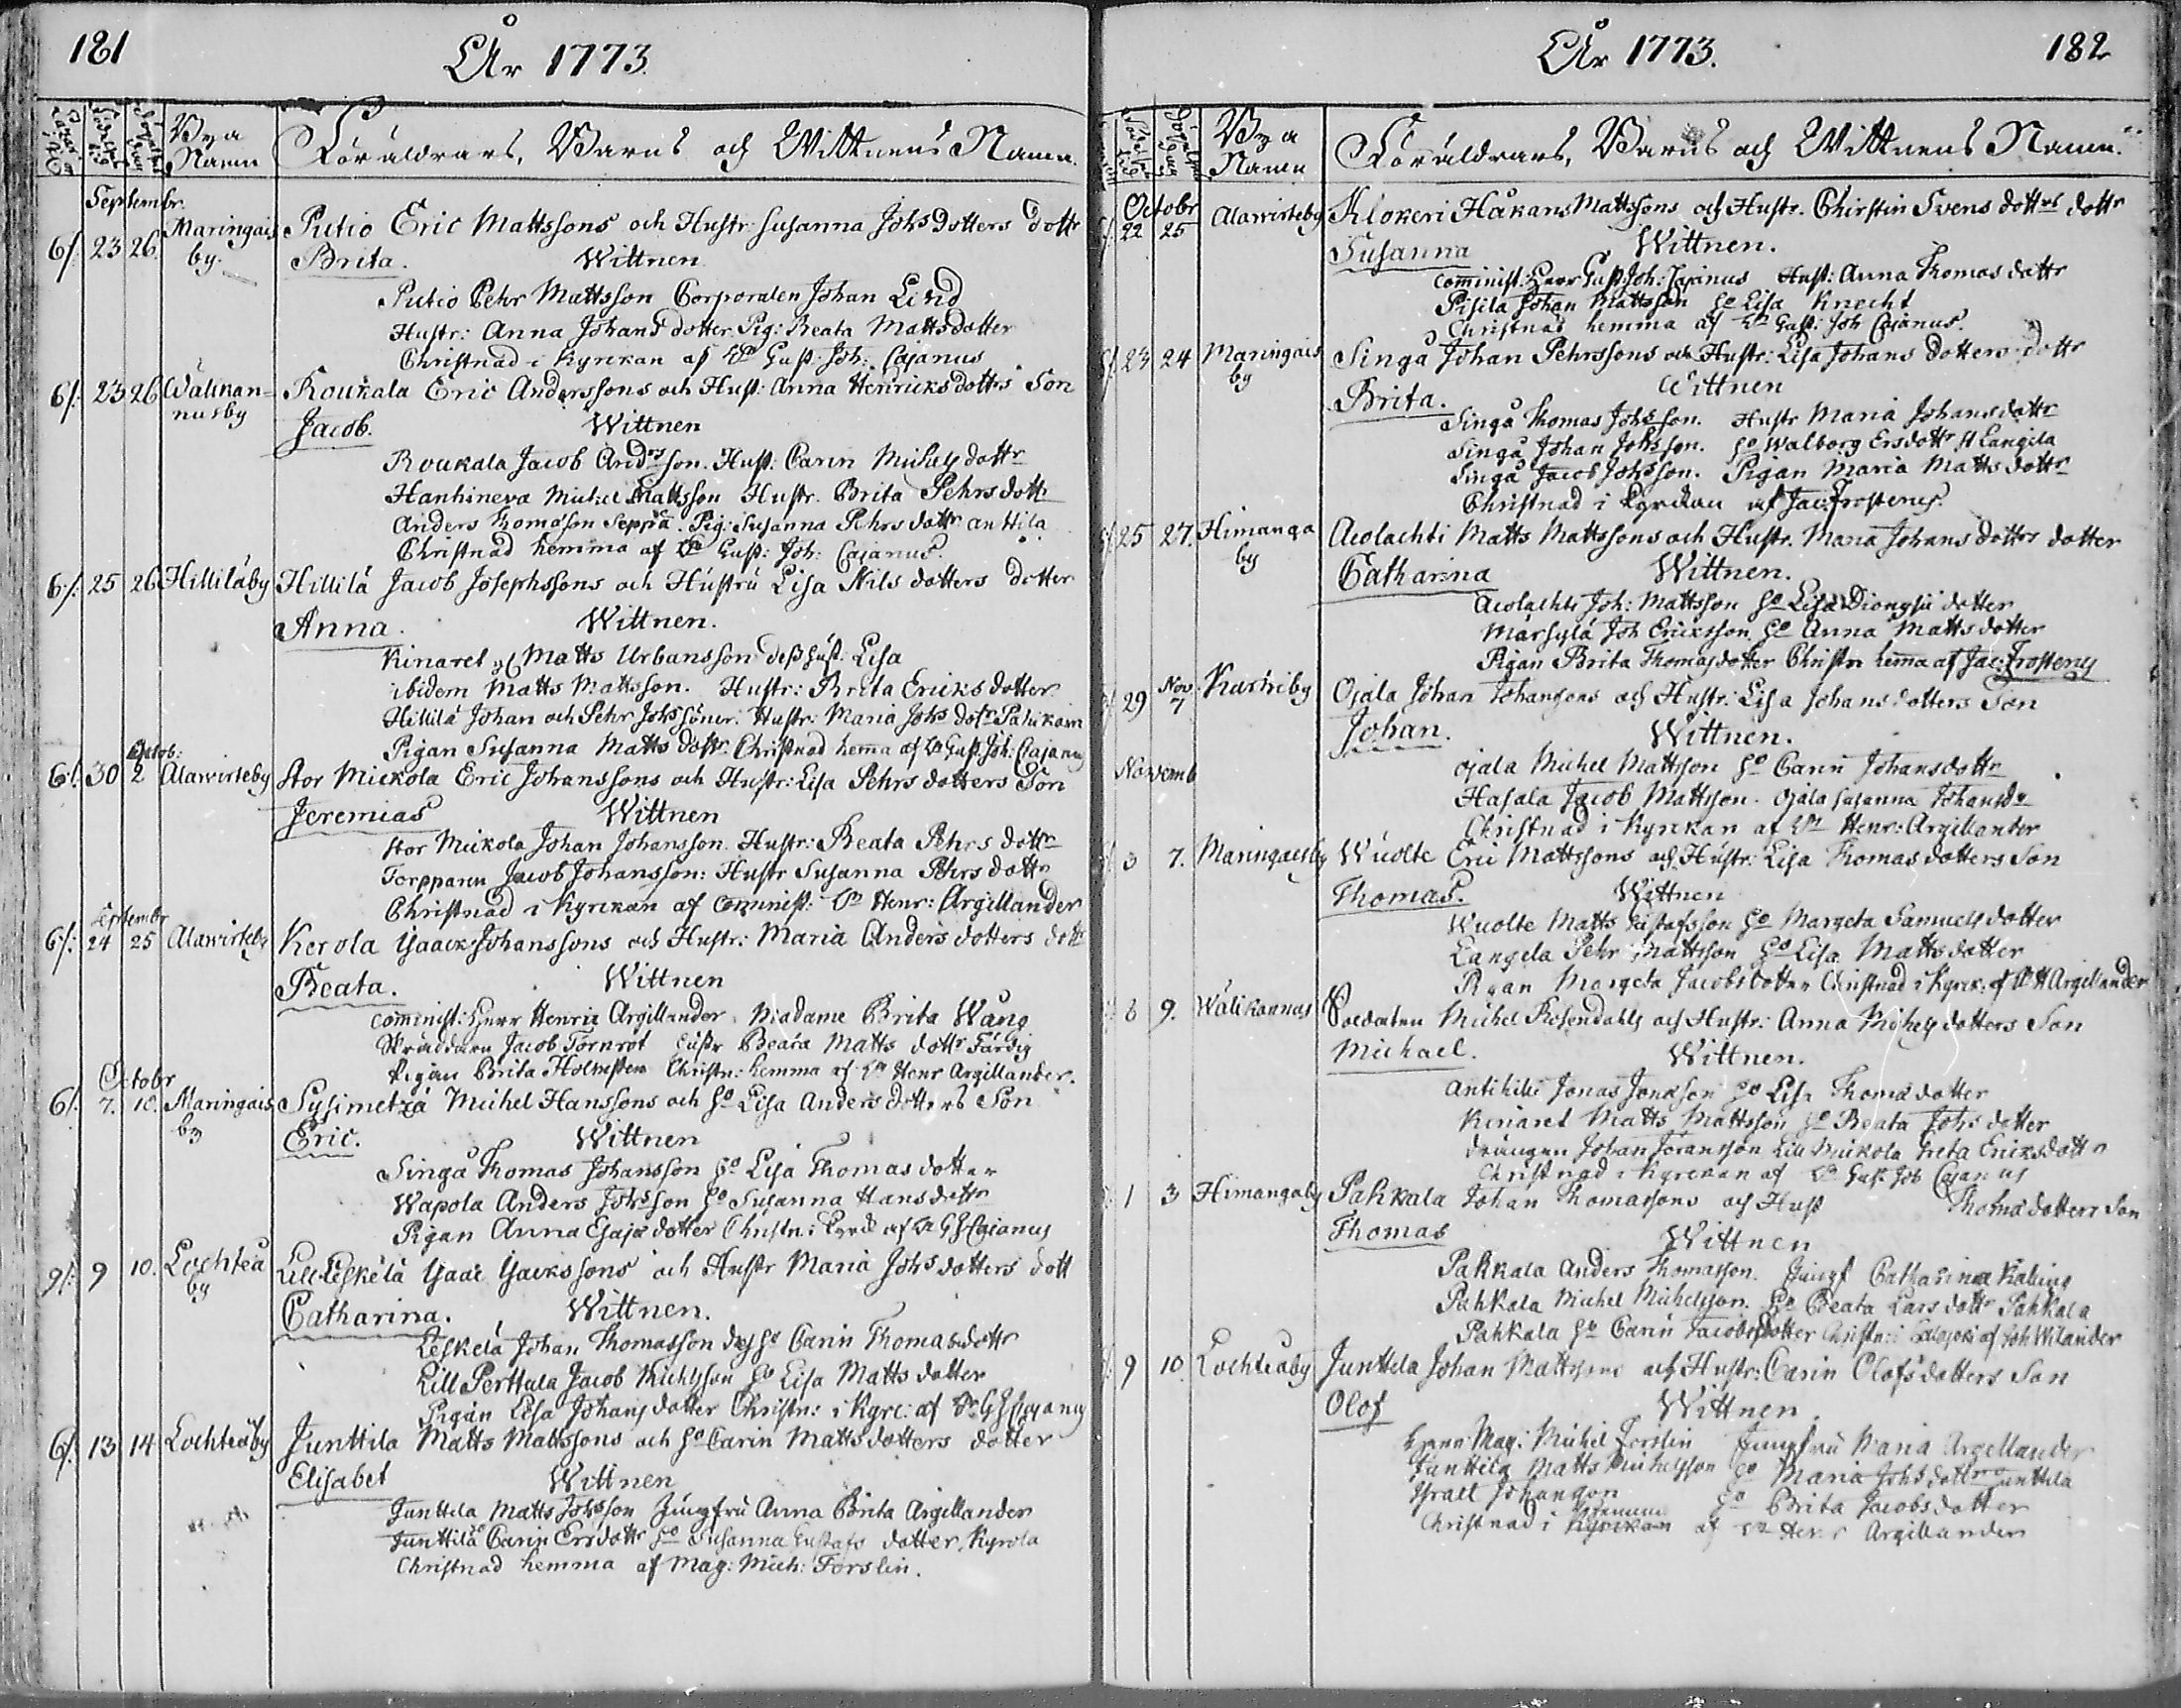 181
År 1773.
Bya Namn
Föräldrars, Barns och Wittnens Namn.
Septembr.
6/: 23 26 Maringais by. Putio Eric Mattssons och Hustr Susanna Johs Dotters dottr
Brita. Wittnen
Putio Pehr Mattsson Corporalen Johan Lind
Hustr: Anna Johans dotter. Pig: Beata Mattsdotter
Christnad i Kyrckan af Gust: Joh: Cajanus
6/: 23 26 Wälikan-nusby Roukala Eric Anderssons och Hust: Anna Henricksdottrs Son
Jacob. Wittnen
Roukala Jacob Andersson. Hust: Carin Michels dottr
Hanhineva Michel Mattsson Hustr. Brita Pehrsdottr
Anders Thomasson Seppä. Pig: Susanna Pehrs dottr Anttila
Christnad hemma af Gust: Joh: Cajanus.
6/: 25 26 Hilliläby Hillilä Jacob Josephssons och Hustru Lisa Nils dotters dotter
Anna. Wittnen.
Kinaret Matts Urbansson dess hust. Lisa
ibidem Matts Mattsson. Hustr: Brita Ericksdotter
Hillilä Johan och Pehr Johssöner. Hustr: Maria Johs dotr Pahikain
Pigan Susanna Matts dottr. Christnad hema af Gust. Joh: Cajanus
6/: 30 Octob: 2 Alawirteby Stor Mickola Eric Johanssons och Hustr: Lisa Pehrs dotters Son
Jeremias Wittnen
Stor Mickola Johan Johansson. Hustr: Beata Pehrs dottr
Torpparen Jacob Johansson: Hustr Susanna Pehrs dottr
Christnad i Kyrckan af Comminist: Henr: Argillander
Septembr
6/: 24 25 Alawirteby Kerola Isaack Johanssons och Hustr: Maria Anders dotters dottr
Beata. Wittnen
Comminist: Herr Henric Argillander. Madame Brita Wäng
Skräddaren Jacob Törnrot Hustr Beata Matts dottr Färdig
Pigan Brita Holmsten Christn: hemma af Henr Argillander.
Octobr
6/: 7. 10. Maringais by Sysimetzä Michel Hanssons och Ho Lisa Anders dotters Son
Eric. Wittnen
Singa Thomas Johansson Ho Lisa Thomas dotter
Wapola Anders Johsson Ho Susanna Hansdottr
Pigan Anna Esajæ dotter Christn. i Kyrck af GJ Cajanus
9/: 9 10. Lochteå by Lill Leskelä Isaac Isackssons och Hustr Maria Johs dotters dott
Catharina. Wittnen.
Leskelä Johan Thomasson dess Ho Carin Thomasdottr
Lill Perttula Jacob Michlsson Ho Lisa Matts dotter
Pigan Lisa Johans dotter Christn: i Kyrc: af GJ Cajanus
6/: 13 14 Lochteåby Junttila Matts Mattssons och Ho Carin Mattsdotters dotter
Elisabet Wittnen
Junttila Matts Johsson Jungfru Anna Brita Argillander
Junttila Carin Ersdottr Ho Susanna Gustafs dotter. Kyrola
Christnad hemma af Mag: Mich: Forslin.
År 1773.
182
Bya Namn
Föräldrars, Barns och Wittnens Namn.
Octobr
22 25 Alawirteby Klokeri Håkans Mattssons och Hustr. Christin Svens dottrs dottr
Susanna Wittnen.
Comminist: Herr Gust: Joh: Cajanus Hust: Anna Thomas dottr
Pisila Johan Mattsson Ho Lisa Knecht
Christnad hemma af Gust: Joh Cajanus.
23 24 Maringais by Singa Johan Pehrssons och Hustr: Lisa Johans dotters dottr
Brita. Wittnen
Singa Thomas Johsson. Hustr Maria Johansdottr
Singa Johan Johsson. Ho Walborg Ersdottr Langila
Singa Jacob Johsson. Pigan Maria Matts dottr
Christnad i Kyrckan af Jac: Frosterus.
25 27. Himanga by Aolachti Matts Mattssons och Hustr. Maria Johans dottrs dotter
Catharina Wittnen.
Aolachti Joh: Mattsson Ho Lisa Dionysii dotter
Märsylä Joh Ericksson Ho Anna Matts dotter
Pigan Brita Thomasdotter Christn hema af Jac: Frosterus
29 Nov 7 Kurkiby Ojala Johan Johansons och Hustr: Lisa Johansdotters Son
Johan. Wittnen.
Ojala Michel Mattsson Ho Carin Johansdottr
Hasala Jacob Mattsson. Ojala Susanna Johansdr
Christnad i Kyrckan af Henr: Argillander
Novemb
3 7. Maringaisby Wuolte Eric Mattssons och Hustr: Lisa Thomasdotters Son
Thomas. Wittnen
Wuolte Matts Gustafsson Ho Margeta Samuelsdotter
Langela Pehr Mattsson Ho Lisa Matts dotter
Pigan Margeta Jacobsdotter Christnad i Kyrck: af H Argillander
8 9. Wälikannus Soldaten Michel Rosendahls och Hustr: Anna Michelsdotters Son
Michael. Wittnen.
Antikiki Jonas Jonasson Ho Lisa Thomædotter
Kinaret Matts Mattsson Ho Beata Johs dotter
Drängen Johan Joransson Lill Mickola Greta Ericksdottr
Christnad i Kyrckan af Gust. Joh Cajanus
1 3 Himangaby Pahkala Johan Thomassons och Hust Thomædotters Son
Thomas Wittnen
Pahkala Anders Thomasson. Jungf Catharina Kaling
Pahkala Michel Michelsson. Ho Beata Larsdottr Pahkala
Pahkala Ho Carin Jacobsdotter Christn: i af Joh Wilander
9 10 Lochteåby Junttela Johan Mattssons och Hustr: Carin Olofsdotters Son
Olof Wittnen
Herr Mag: Michel Forslin Jungfru Maria Argellander
Junttila Matts Michelsson Ho Maria Johsdottr Junttila
Israel Johanson Ho Brita Jacobsdotter
Christnad i Kyrckan hemma af Henr Argillander